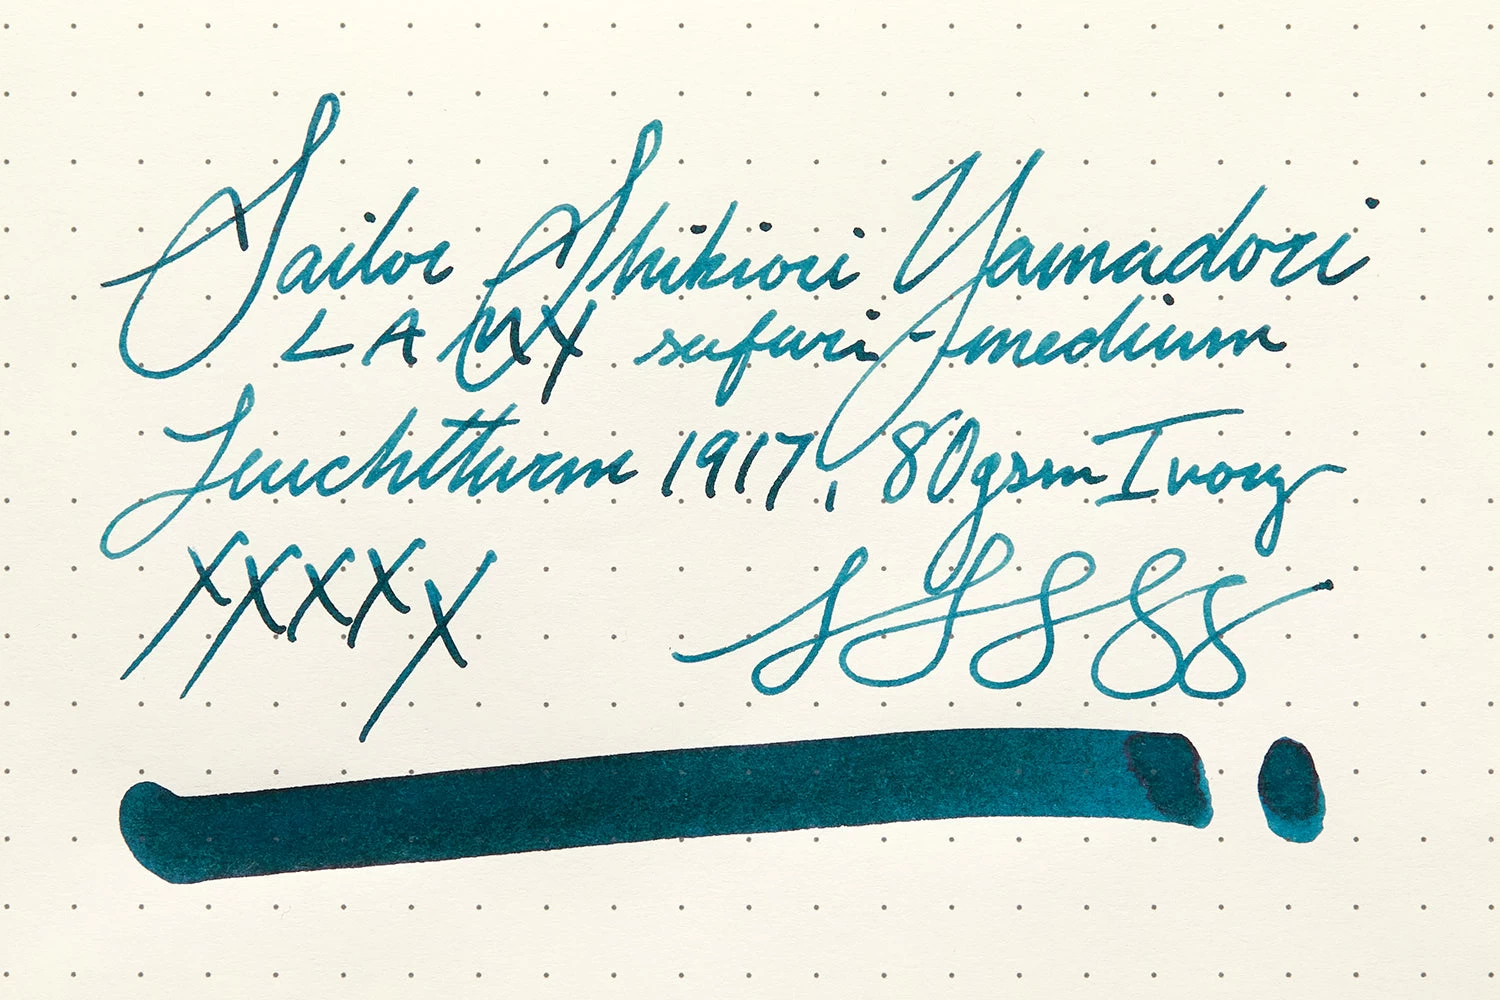 Sailor Shikiori Yamadori
LAMY safari - medium
Leuchtturm 1917, 80gsm Ivory
XXXXX SSSSS